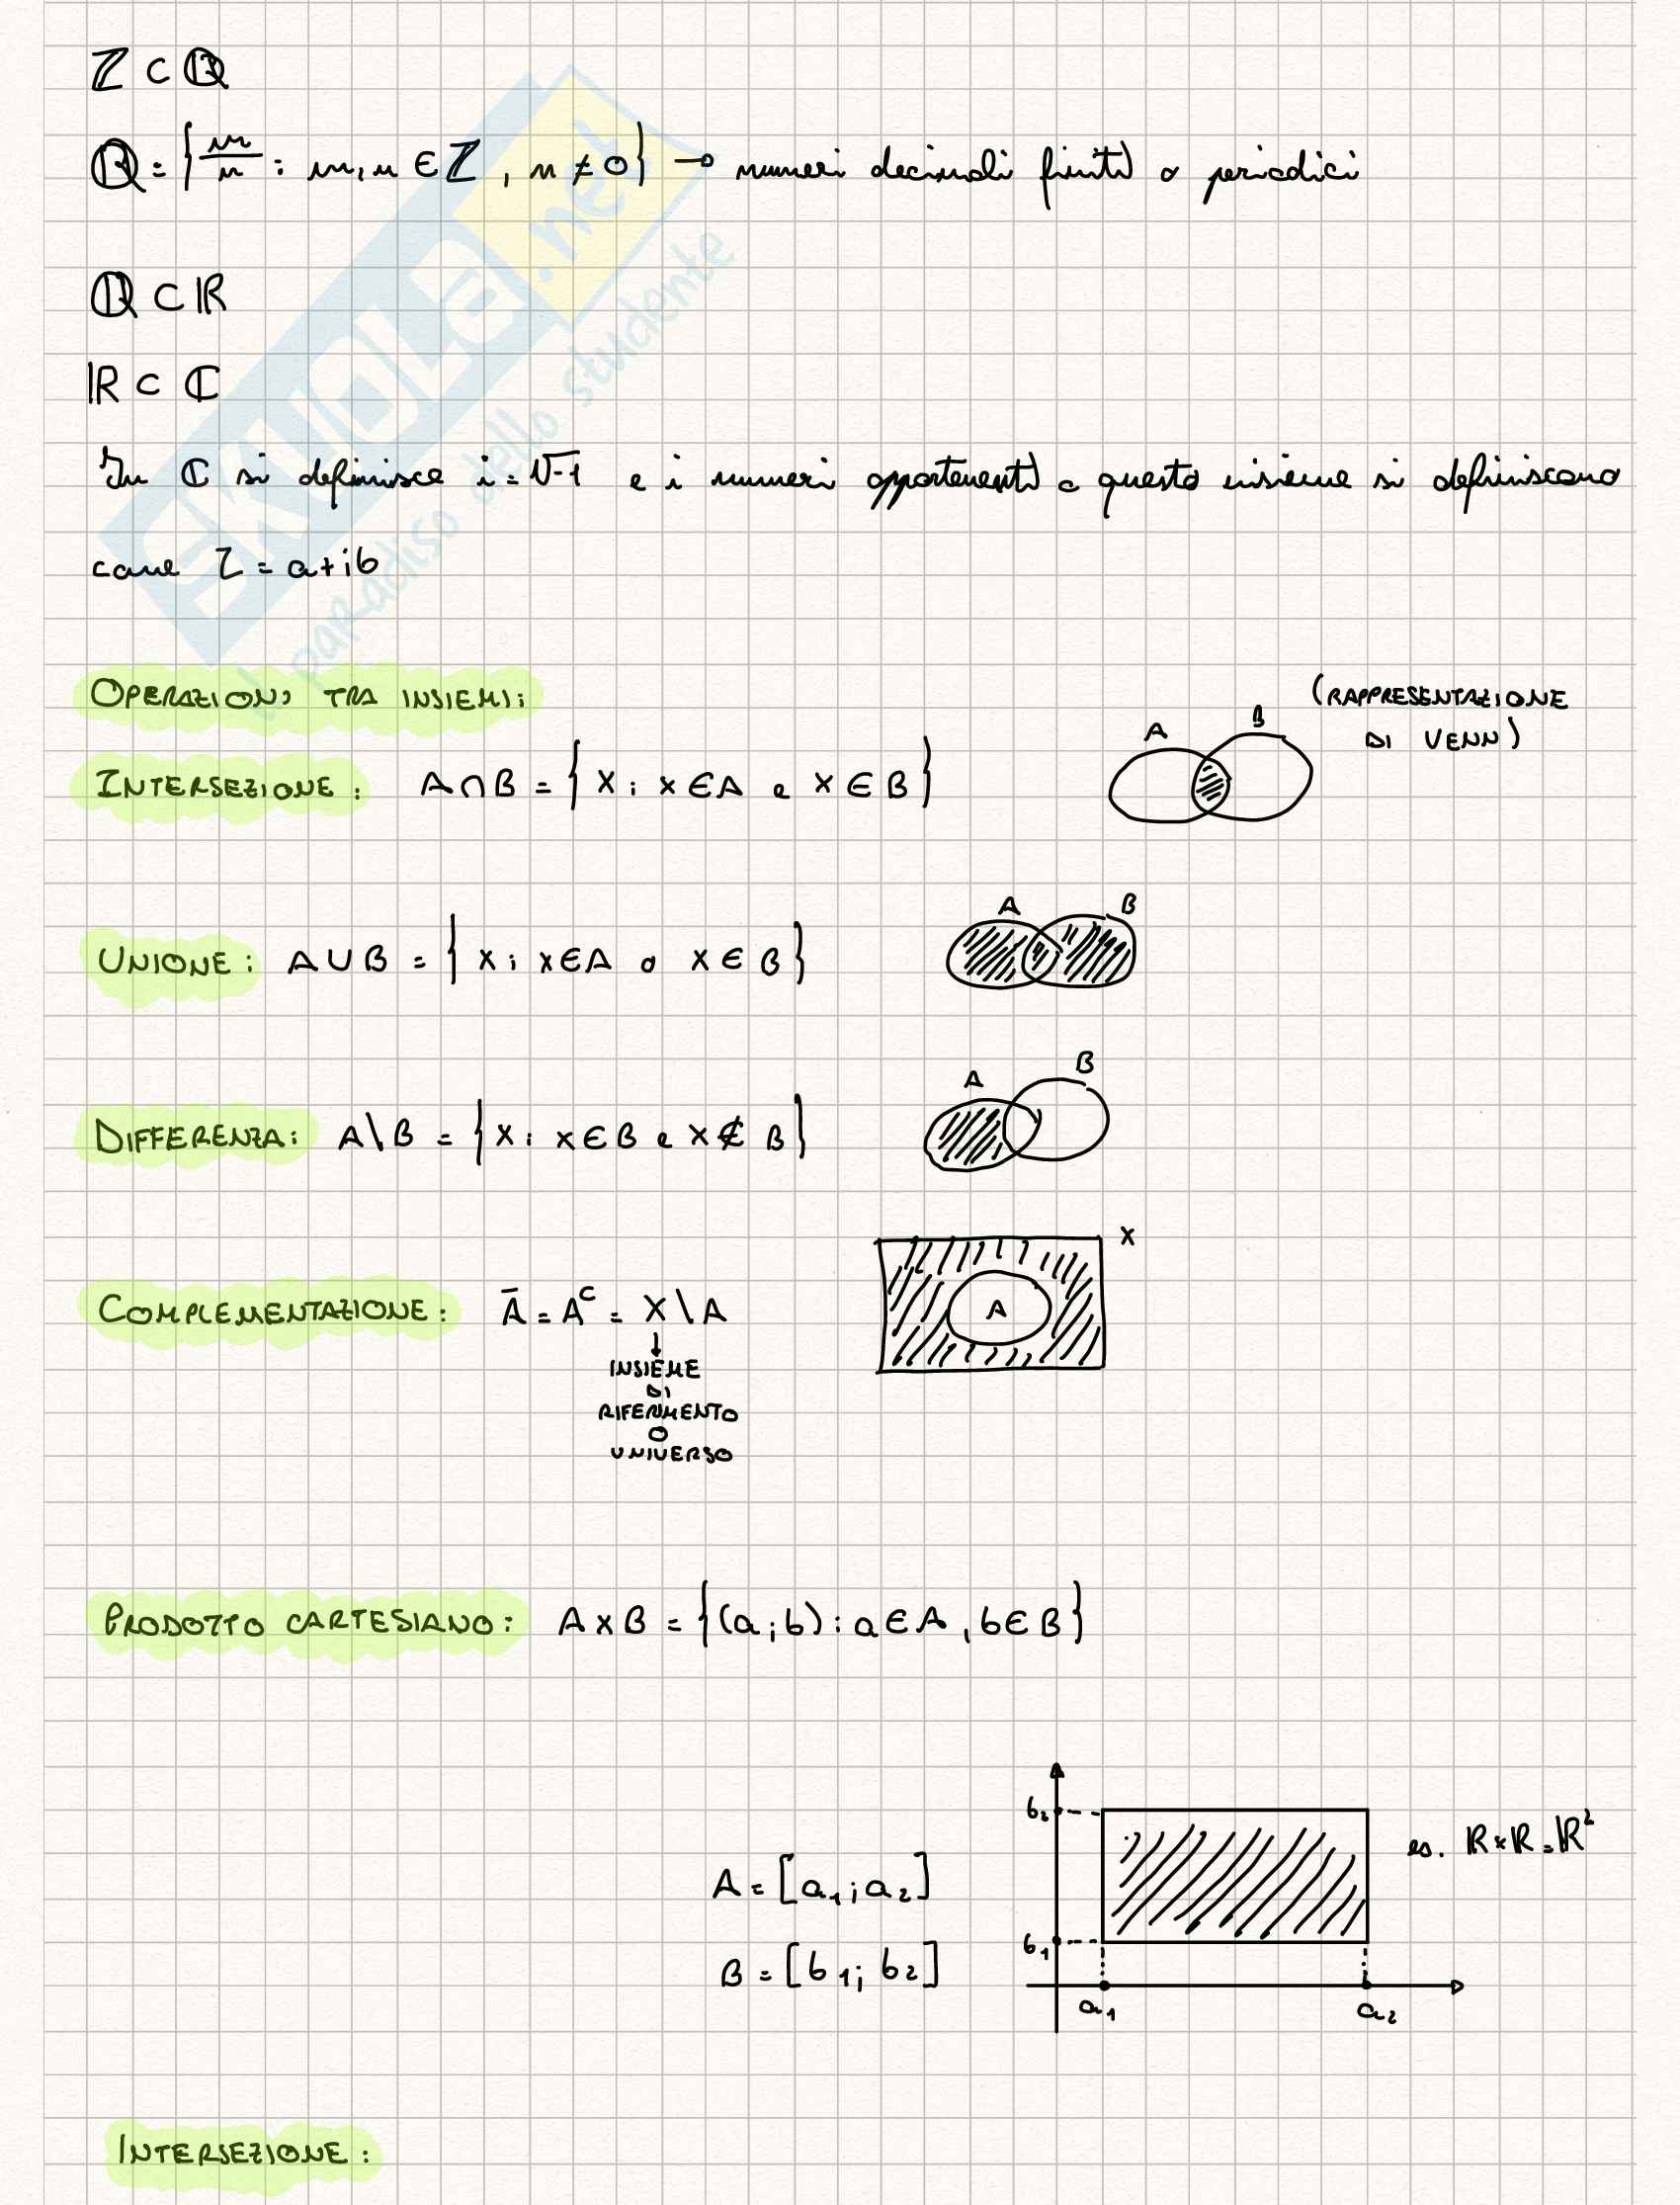 ℤ ⊂ ℚ
ℚ = { m/n : m, n ∈ ℤ , n ≠ 0 } → numeri decimali finiti o periodici
ℚ ⊂ ℝ
ℝ ⊂ ℂ
In ℂ si definisce i = √-1 e i numeri appartenenti a questo insieme si definiscono
come Z = a+ib
OPERAZIONI TRA INSIEMI:
(RAPPRESENTAZIONE
DI VENN)
A B
INTERSEZIONE: A∩B = { x : x ∈ A e x ∈ B }
A B
UNIONE: A ∪ B = { x : x ∈ A o x ∈ B }
A B
DIFFERENZA: A\B = { x : x ∈ B e x ∉ B }
X
COMPLEMENTAZIONE: Ā = Aᶜ = X \ A
A
↓
INSIEME
DI
RIFERIMENTO
O
UNIVERSO
PRODOTTO CARTESIANO: A x B = { (a ; b) : a ∈ A , b ∈ B }
b₂
es. ℝ × ℝ = ℝ²
A = [a₁ ; a₂]
b₁
B = [b₁ ; b₂]
a₁ a₂
INTERSEZIONE:
SKUOLA.net
il paradiso dello studente